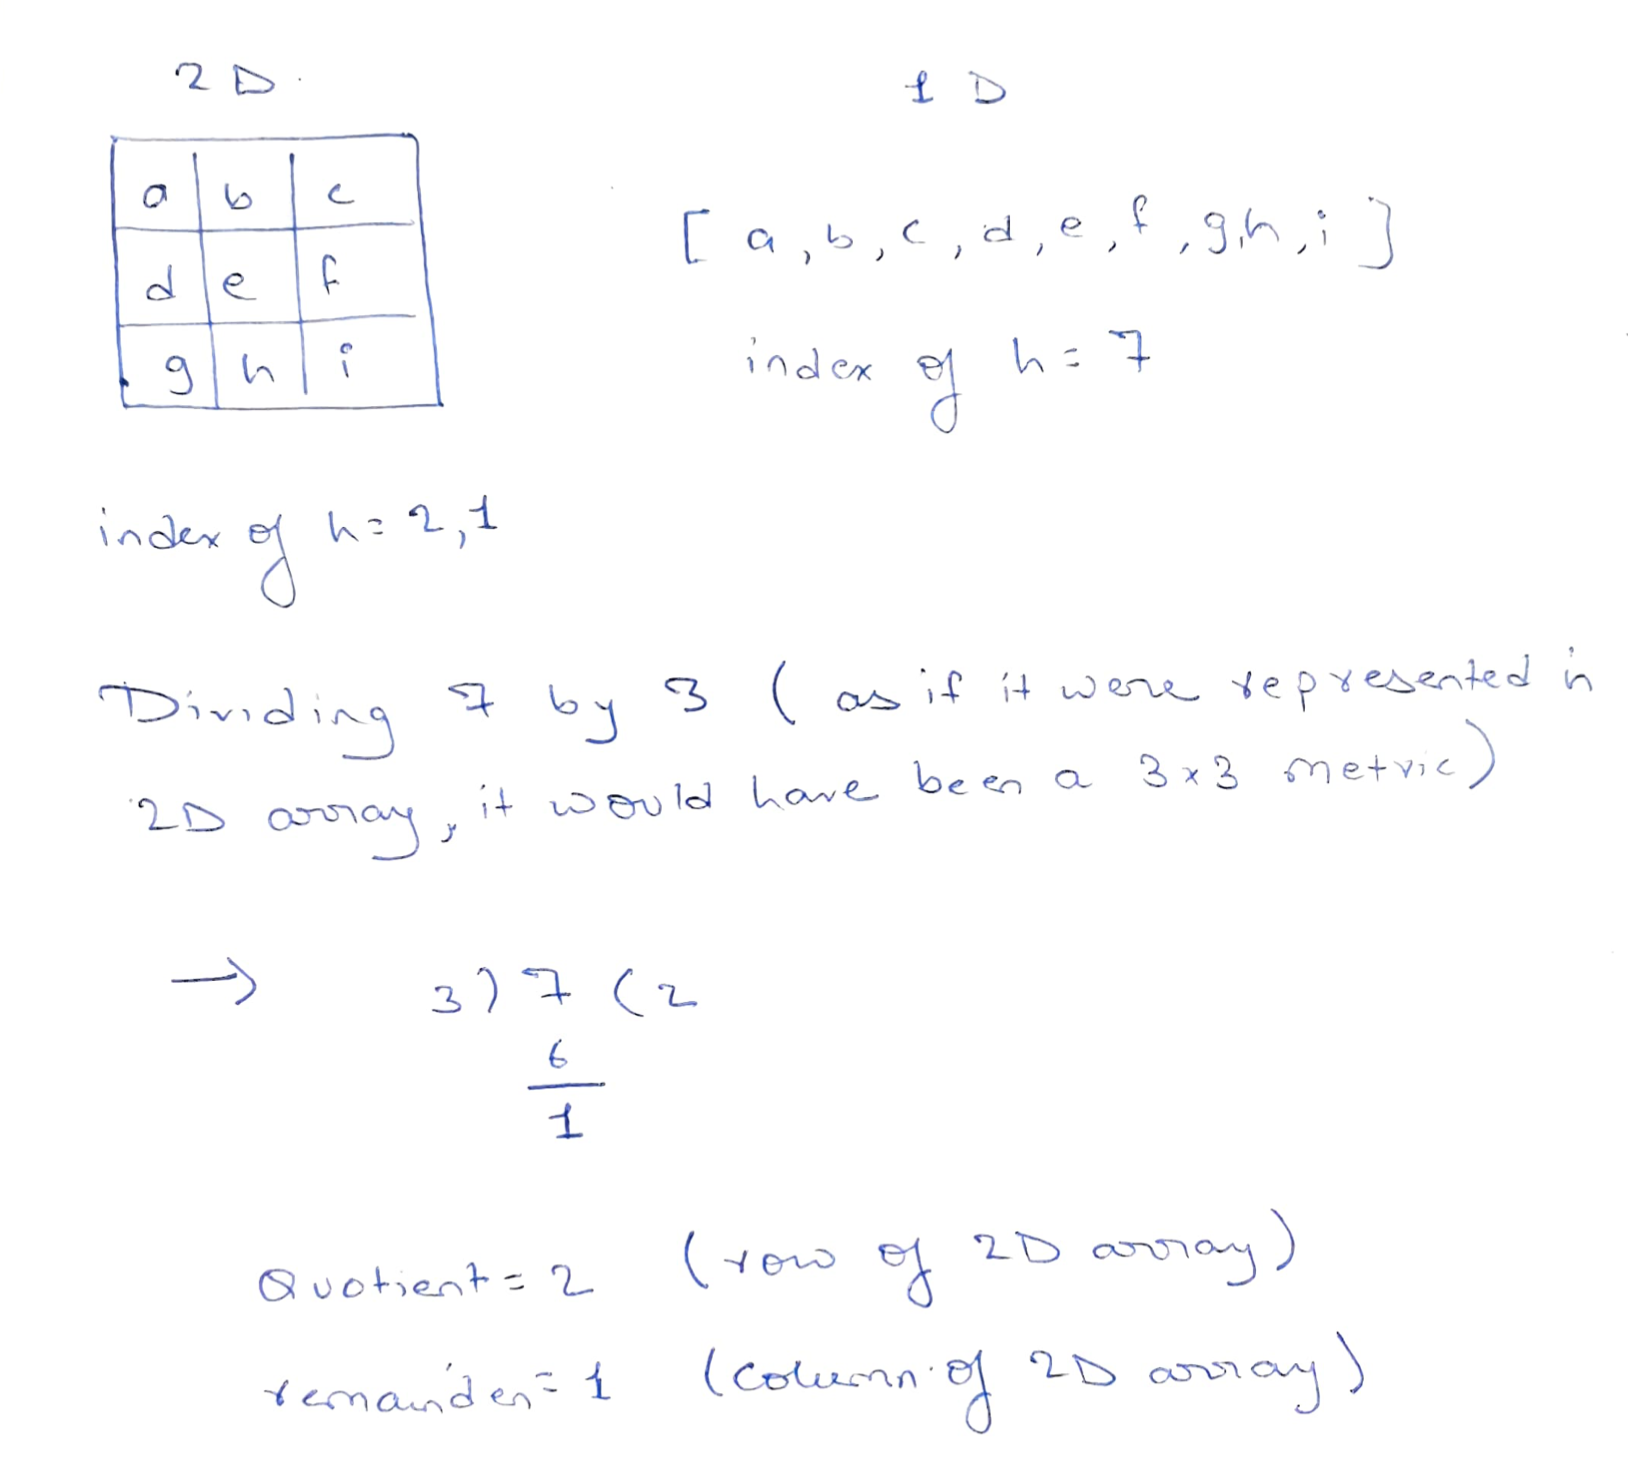 2D
1 D
a b c
d e f
g h i
[ a, b, c, d, e, f, g, h, i ]
index of h = 7
index of h = 2, 1
Dividing 7 by 3 ( as if it were represented in
2D array, it would have been a 3x3 metric)
→ 3 ) 7 ( 2
6
1
Quotient = 2 (row of 2D array)
remainder = 1 (column of 2D array)